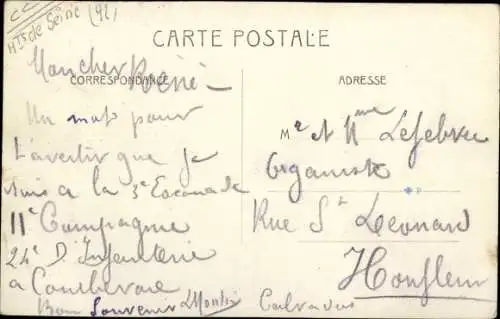 Hts de Seine (92)
CARTE POSTALE
CORRESPONDANCE
Mon cher René
Un mot pour
t'avertir que je
suis a la 3e Escouade
11e Compagnie
24e D'Infanterie
a Courbevoie
Bon Souvenir
ADRESSE
Mr et Mme Lefebvre
Organiste
Rue St Leonard
Honfleur
Calvados